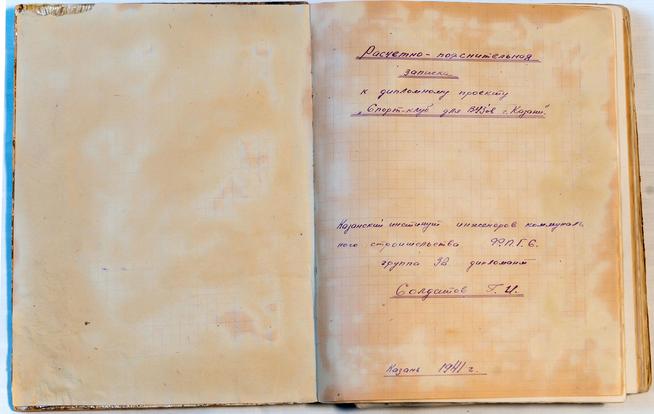 Расчетно-пояснительная
записка
к дипломному проекту
„Спорт-клуб для ВУЗов г. Казани"
Казанский институт инженеров коммуналь
ного строительства Ф.П.Г.С.
группа 32 дипломант
Солдатов Г. И.
Казань 1941 г.